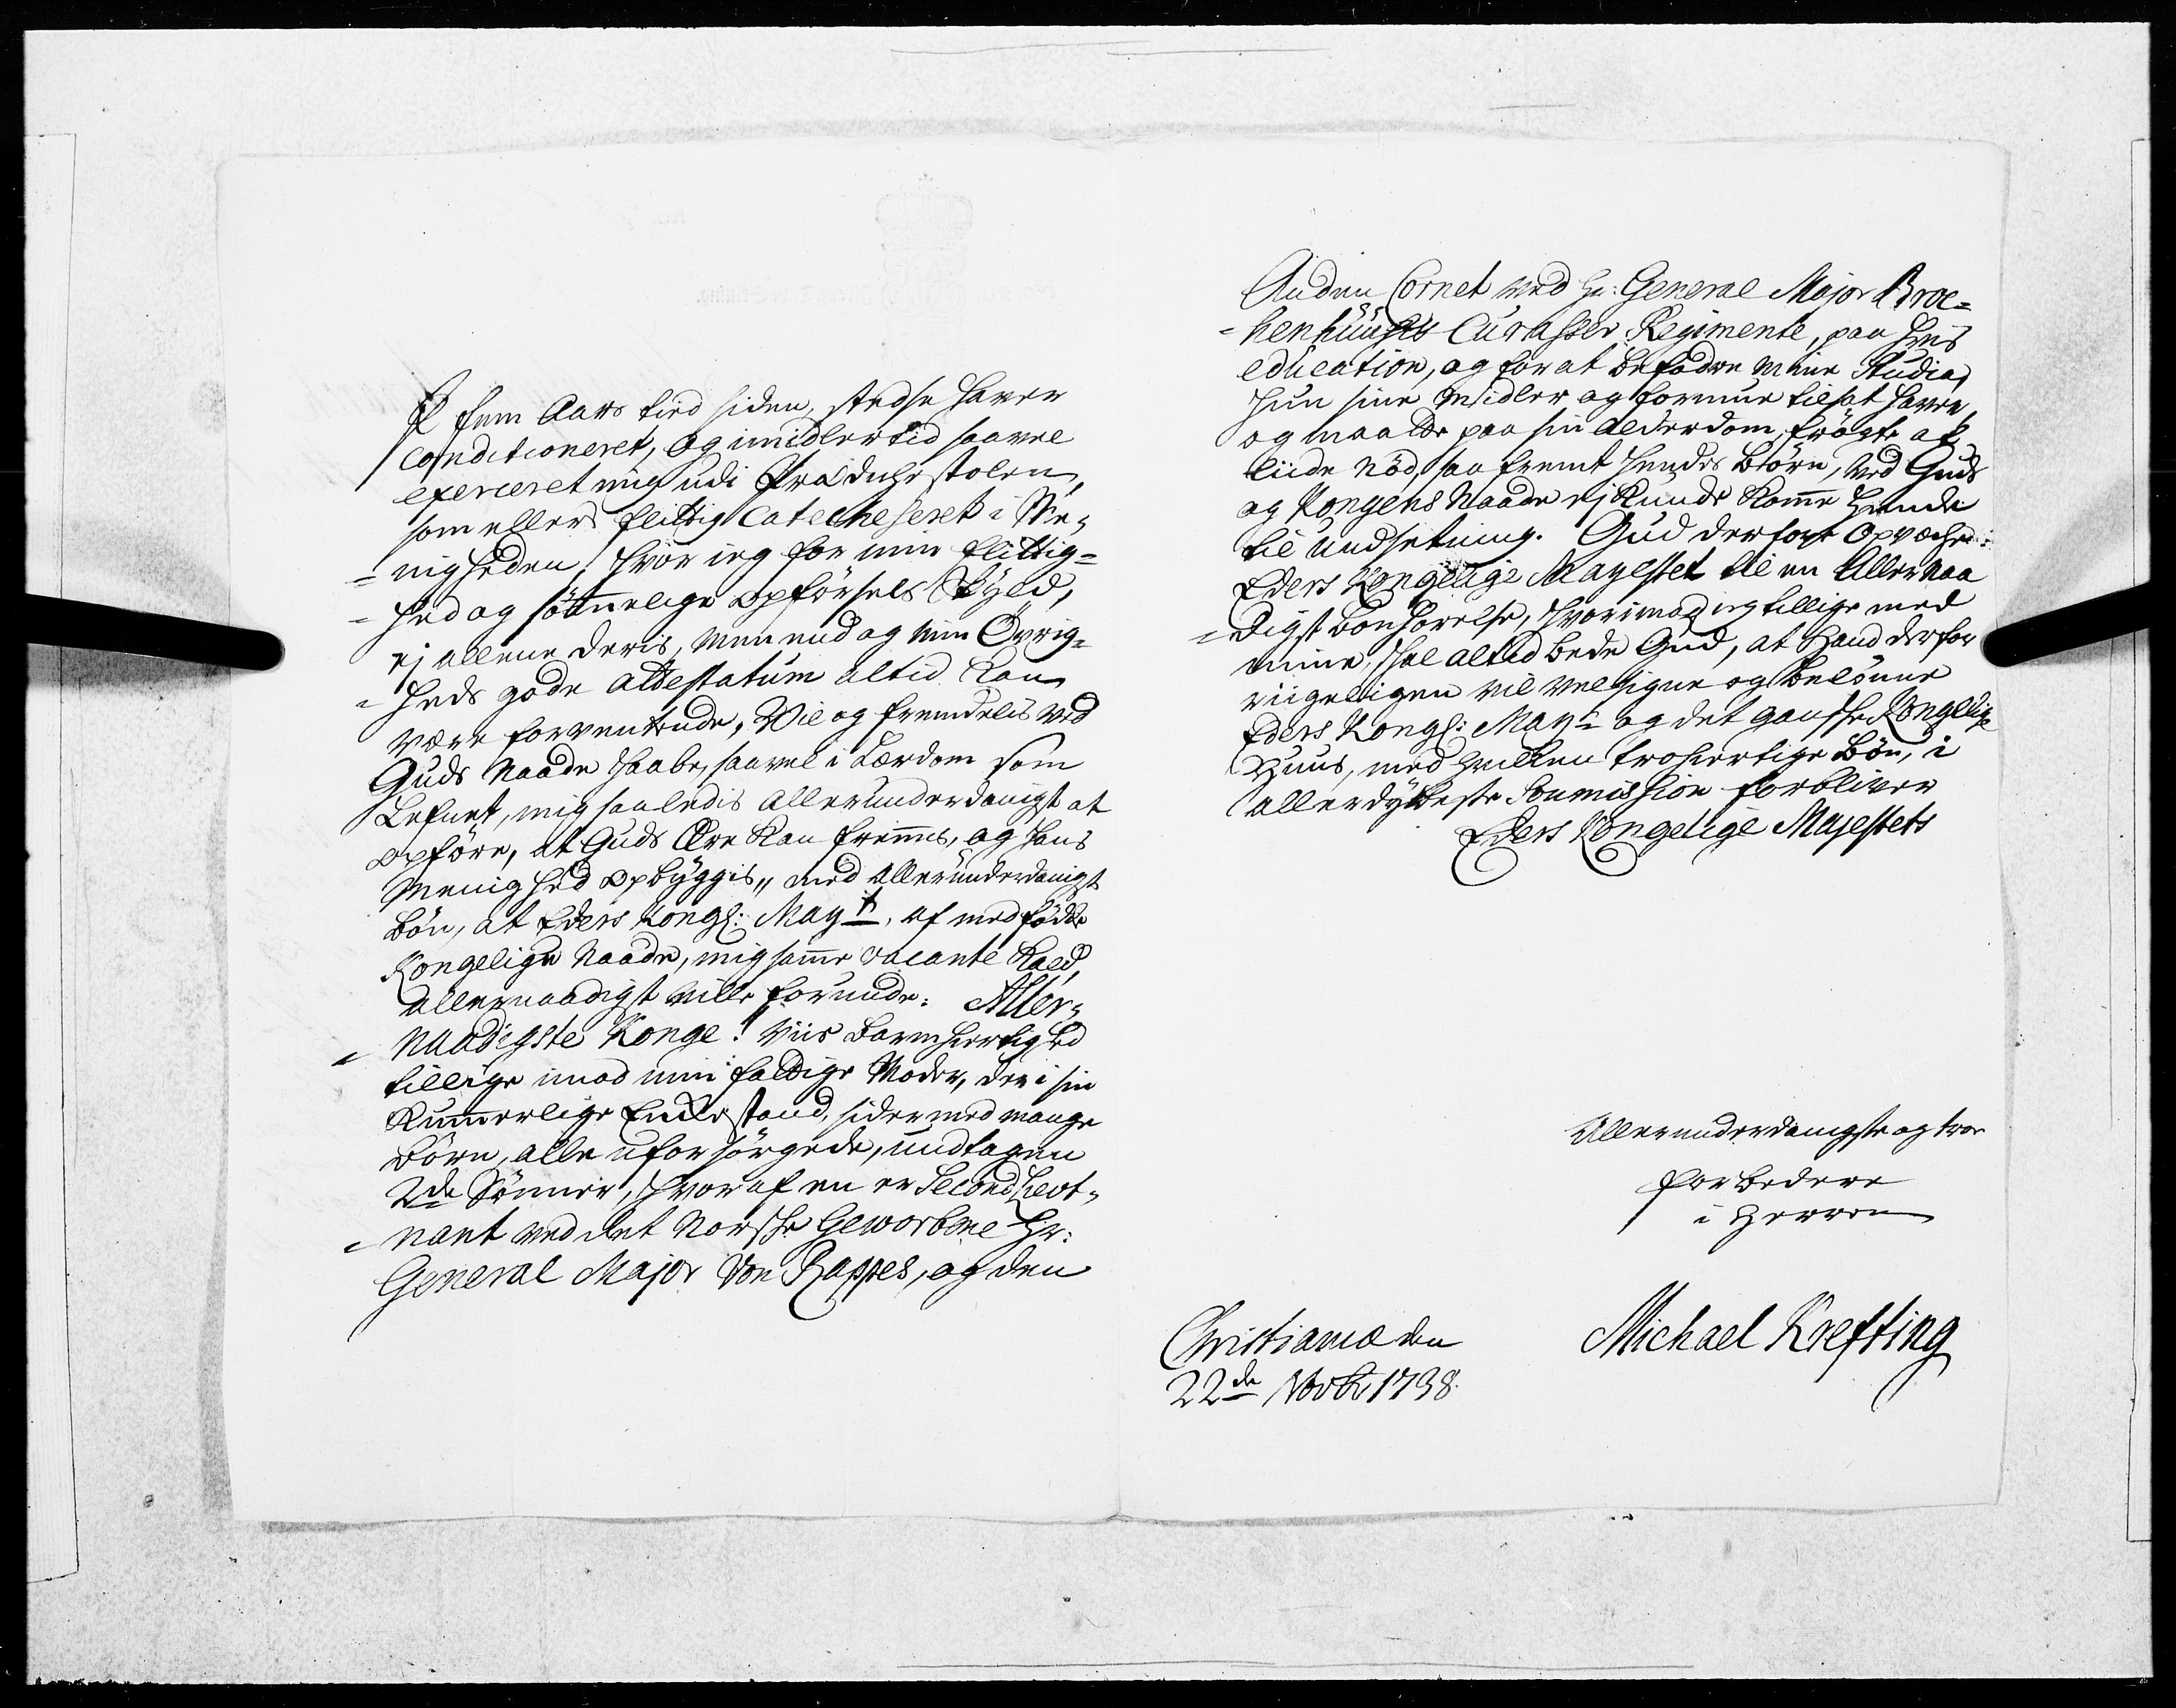 I fem Aars tiid siden, stedse haver
conditioneret, og imidlertid saavel
exerceret mig udi Prædichestolen,
som ellers flittig Catecheseret i Me-
= nigheden, hvor ieg for min flittig-
= hed og sømmelige opførsels skyld,
ej allene deris, men end og min Øvrig-
= heds gode attestatum altid kan
være forventende, Vil og fremdelis ved
Guds Naade haabe, saavel i Lærdom som
Lefnet, mig saaledis allerunderdanigst at
opføre, at Guds Ære kan fremmes, og hans
Menighed opbyggis, med allerunderdanigst
bøn, at Eders Kongl: Mayt, af medfødde
Kongelige Naade, mig samme vacante Kald,
allernaadigst ville forunde. Aller-
= naadigste Konge! Viis barmhertighed
tillige imod min fattige Moder, der i sin
Kummerlige Enkestand, sider med mange
børn, alle uforsørgede, undtagen
2de Sønner, hvoraf en er Second Lieut-
= nant ved det Norske Geworbne Hr:
General Major Von Rappes, og den
Anden Cornet ved Hr: General Major Broc-
= kenhuuses Curasseer Regimente, paa hvis
education, og for at befodre mine Studia,
hun sine Midler og formue tilsat haver,
og maatte paa sin Alderdom frøgte at
liide Nød, saa fremt hendes Børn, ved Guds
og Kongens Naade ej kunde komme hende
til undsetning. Gud derfore opvæche
Eders Kongelige Mayestet til en Allernaa
= digst bønhørelse, hvorimod ieg tillige med
mine, skal altid bede Gud, at Hand derfor
riigeligen vil velsigne og belønne
Eders Kongl: Mayt og det gandske Kongelige
Huus, med hvilken trohiertige bøn, i
allerdybeste Soumission forbliver
Eders Kongelige Majestets
Allerunderdanigste og troe
forbedere
i Herren
Christiania den
22de Novbr 1738.
Michael Krefting